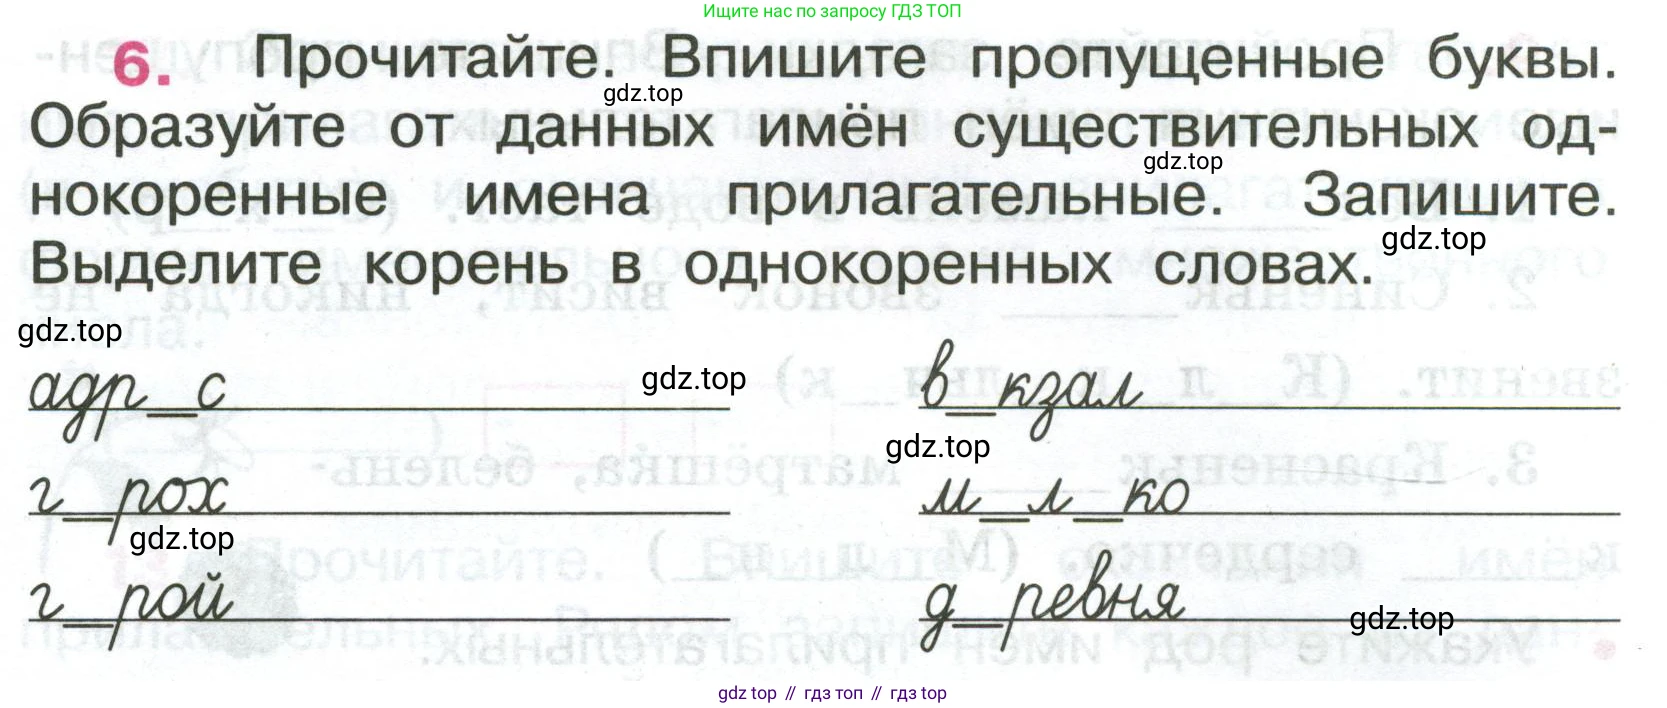 Ищите нас по запросу ГДЗ ТОП
6. Прочитайте. Впишите пропущенные буквы.
gdz.top
Образуйте от данных имён существительных од-
gdz.top
нокоренные имена прилагательные. Запишите.
gdz.top
Выделите корень в однокоренных словах.
gdz.top
адр_с gdz.top в_кзал
gdz.top
г_рох м_л_ко
gdz.top
г_рой д_ревня gdz.top
gdz top // гдз топ // гдз top